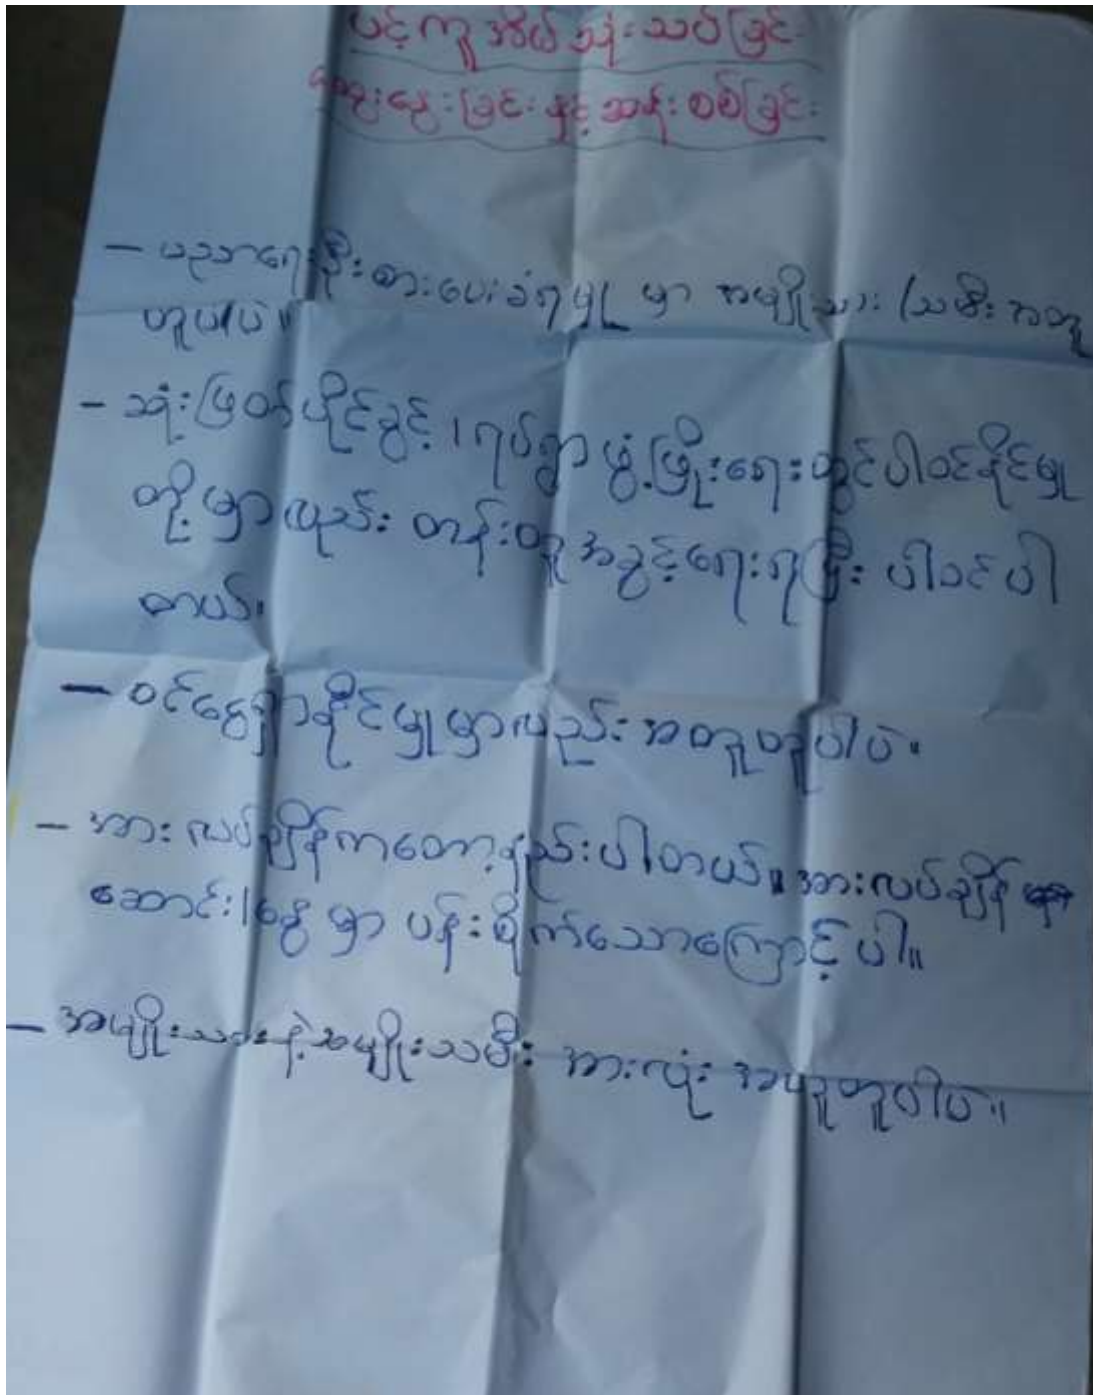 ပင့်ကူအိမ် သုံးသပ်ခြင်း
ဆွေးနွေးခြင်း နှင့် ဆန်းစစ်ခြင်း
– ပညာရေးဦးစားပေးခံရမှု မှာ အမျိုးသား/သမီး အတူ
တူပါပဲ။
– ဆုံးဖြတ်ပိုင်ခွင့်၊ ရပ်ရွာ ဖွံ့ဖြိုးရေးတွင်ပါဝင်နိုင်မှု
တို့မှာလည်း တန်းတူအခွင့်ရေးရပြီး ပါဝင်ပါ
တယ်။
– ဝင်ငွေရှာနိုင်မှုမှာလည်း အတူတူပါပဲ။
– အားလပ်ချိန်ကတော့နည်းပါတယ်။ အားလပ်ချိန်
ဆောင်း/နွေ မှာ ပန်းစိုက်သောကြောင့်ပါ။
– အမျိုးသားနဲ့အမျိုးသမီး အားလုံး အတူတူပါပဲ။